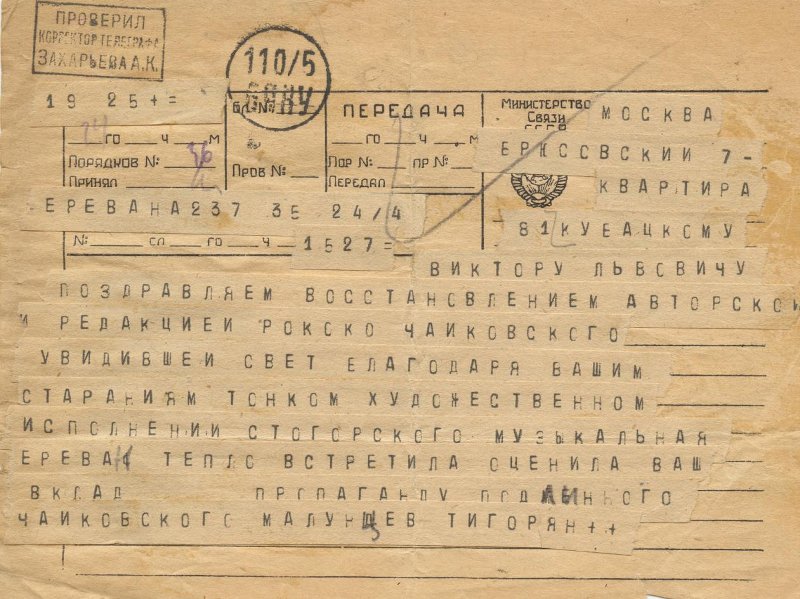 ПРОВЕРИЛ
КОРРЕКТОР ТЕЛЕГРАФА
ЗАХАРЬЕВА А.К.
110/5
19 25+=
Бл. №
ПЕРЕДАЧА
Министерство
Связи
СССР
МОСКВА
го ч м
го ч м
ЕРЮССВСКИЙ 7-
Порядков №:
Пров №:
Пор №: пр №:
Принял
Передал
КВАРТИРА
ЕРЕВАНА237 35 24/4
81КУЕАЦКОМУ
№: сл го ч
1527=
ВИКТОРУ ЛЬВСВИЧУ
ПОЗДРАВЛЯЕМ ВОССТАНОВЛЕНИЕМ АВТОРСКОИ
И РЕДАКЦИЕИ РОКСКО ЧАИКОВСКОГО
УВИДИВШЕИ СВЕТ ЕЛАГОДАРЯ ВАШИМ
СТАРАНИЯМ ТОНКОМ ХУДОЖЕСТВЕННОМ
ИСПОЛНЕНИИ СТОГОРСКОГО МУЗЫКАЛЬНАЯ
ЕРЕВАН ТЕПЛО ВСТРЕТИЛА ОЦЕНИЛА ВАШ
ВКЛАД ПРОПАГАНДУ ПОДЛИННОГО
ЧАИКОВСКОГО МАЛУНЦЕВ ТИГОРЯН++